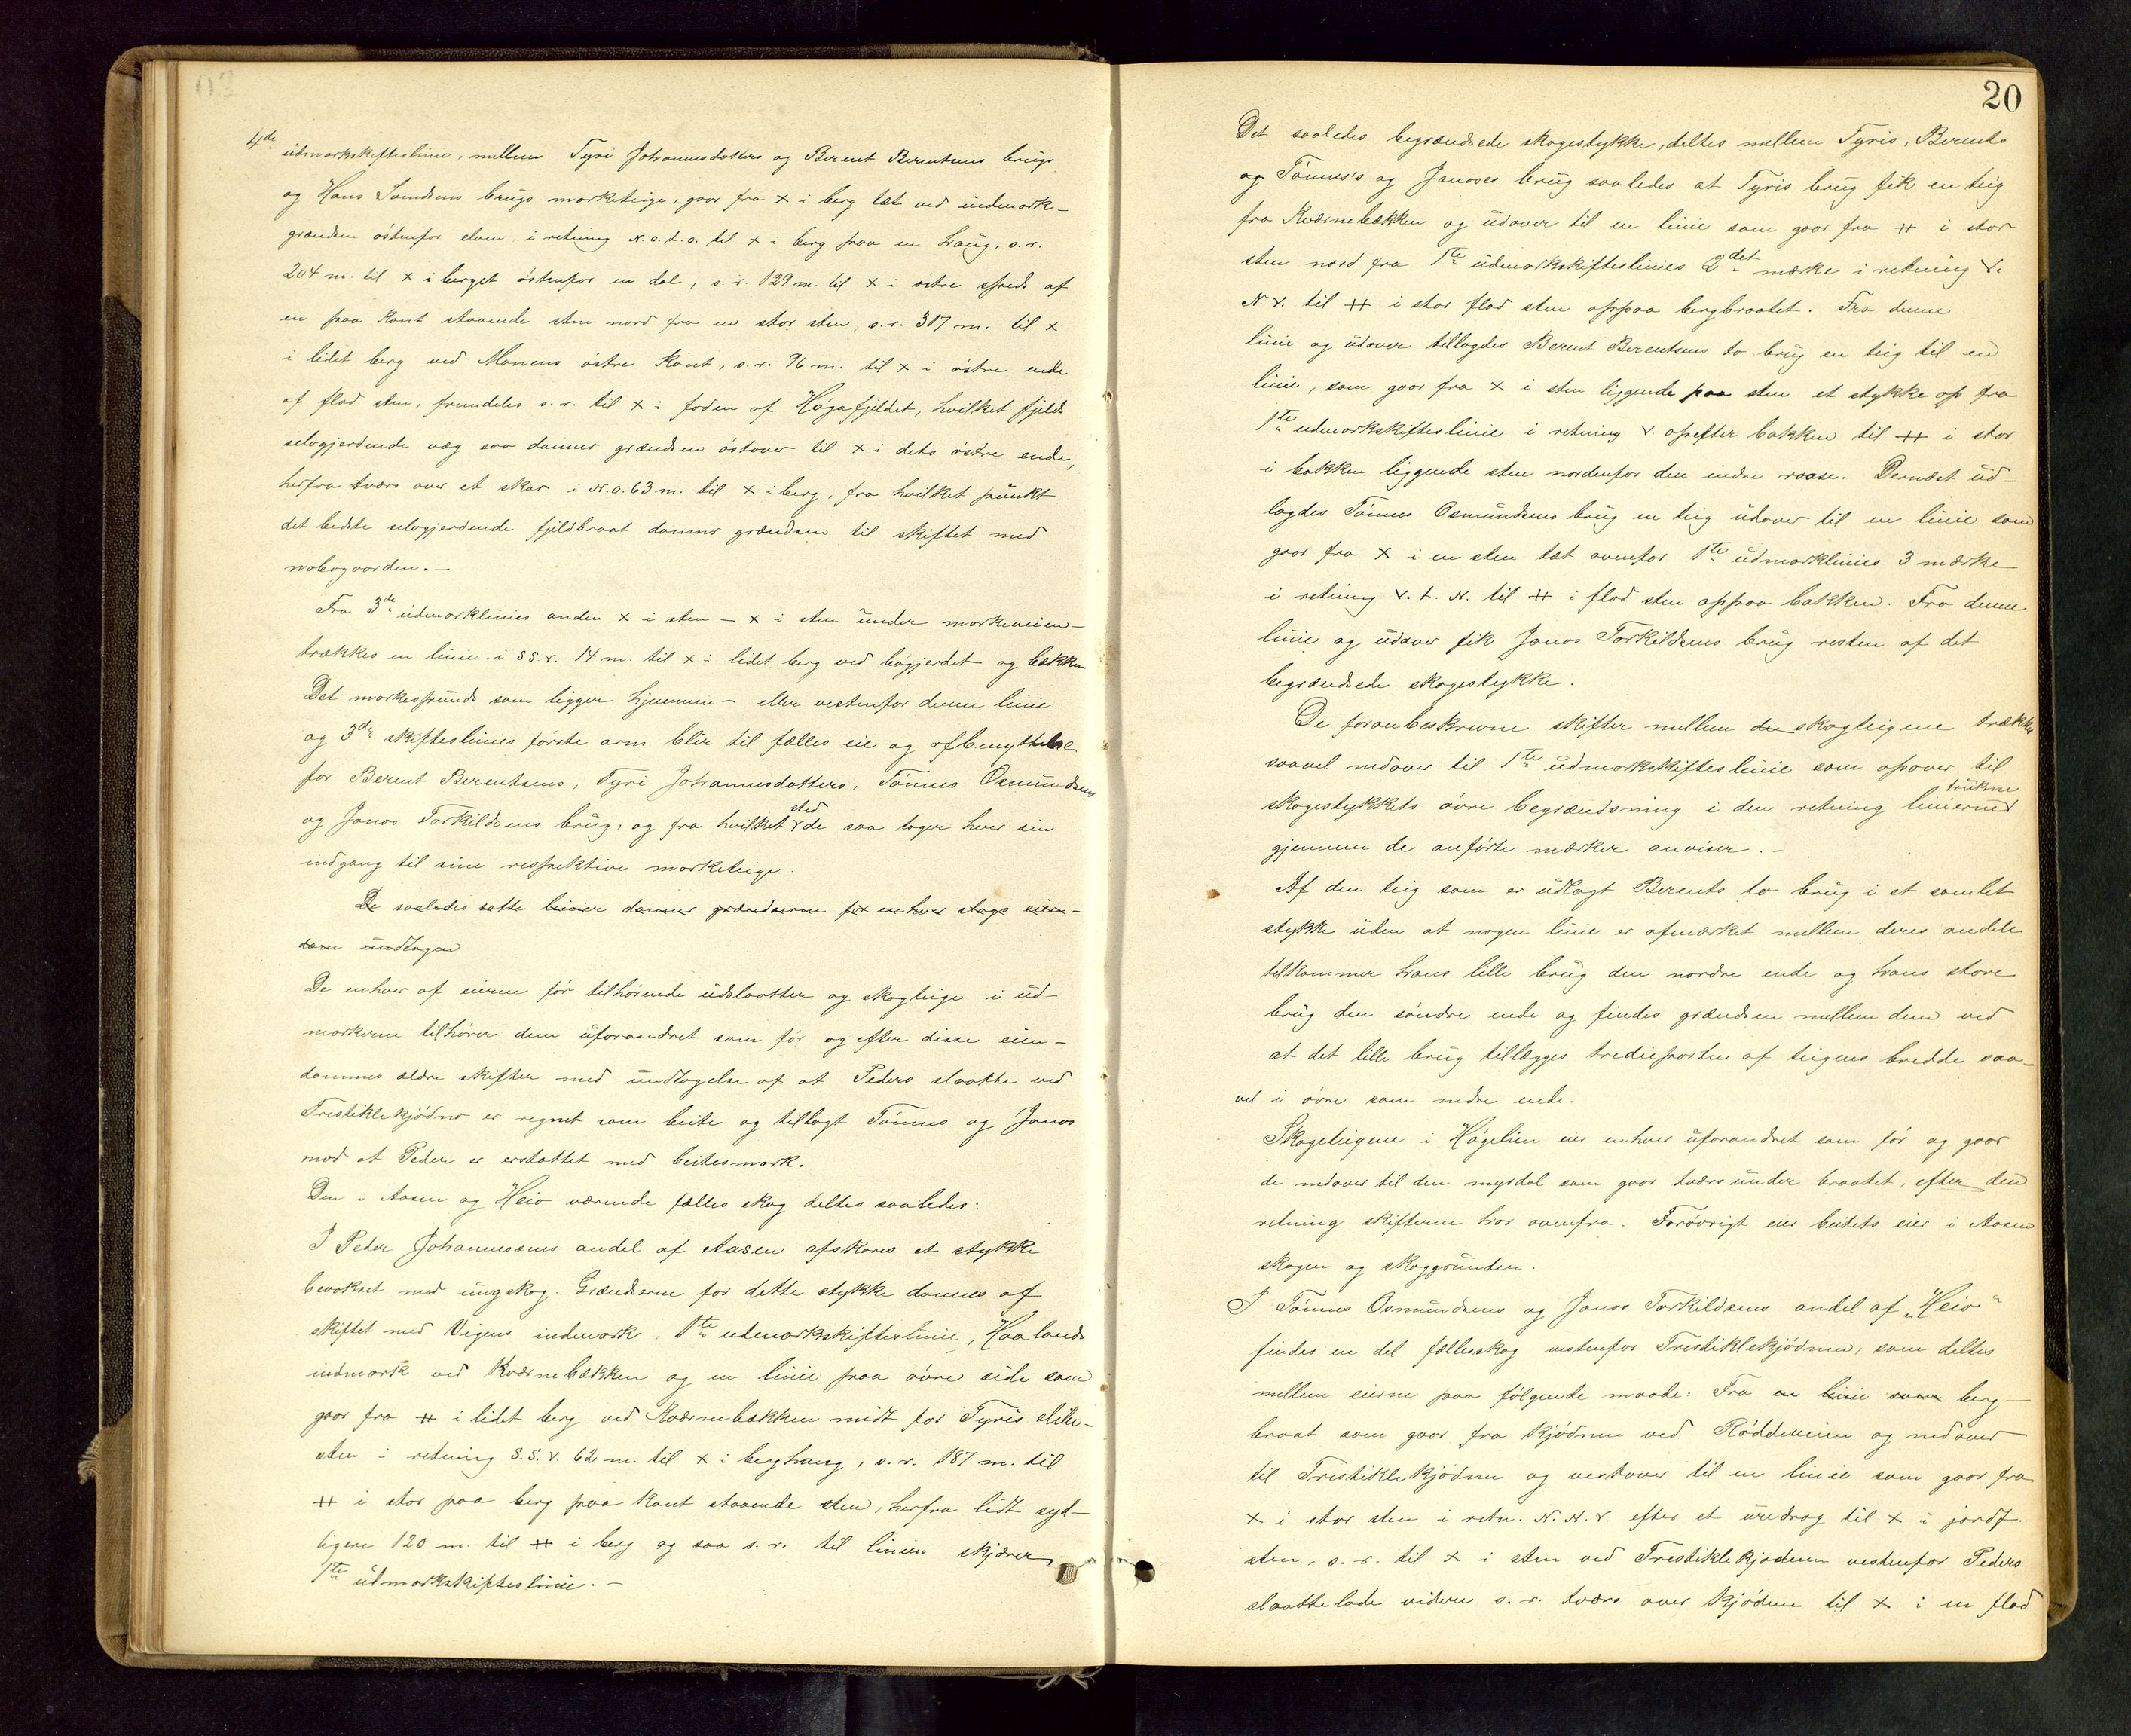 4de udmarkskifteslinie, mellem Tyri Johannesdatters og Berent Berentsens brugs
og Hans Svendsens brugs marketeige, gaar fra x i berg tæt ved indmark-
grændsen østenfor elven i retning N.O.t.O. til x i berg paa en haug, s.r.
204 m. til x i berget østenfor en dal, s.r. 129 m. til x i vitre spids af
en paa kant staaende sten nord fra en stor sten, s.r. 317 m. til x
i lidet berg ved Manens østre kant, s.r. 96 m. til x i østre ende
af flad sten, fremdeles s.r. til x i foden af Høgafjeldet, hvilket fjelds
selvgjerdende væg saa danner grændsen østover til x i dets østre ende,
herfra tværs over et skar i N.O. 63 m. til x i berg, fra hvilket punkt
det bedste selvgjerdende fjeldbraat danner grændsen til skiftet med
nabogaarden.-
Fra 3de udmarklinies anden x i sten - x i sten under markeveien-
trækkes en linie i S.S.V. 14 m. til x i lidet berg ved bøgjerdet og bækken
Det markespunds som ligger hjemmen- eller vestenfor denne linie
og 3die skifteslinies første arm blir til fælles eie og afbenyttelse
for Berent Berentsens, Tyri Johannesdatters, Tønnes Osmundsens
og Jonas Torkildsens brug, og fra hvilket sted de saa tager hver sin
indgang til sine respektive marketeige.
De saaledes satte linier danner grændserne for enhver slags eien-
dom undtagen
De enhver af eierne før tilhørende udslaatter og skogteige i ud-
markerne tilhører dem uforandret som før og efter disse eien-
dommes ældre skifter med undtagelse af at Peders slaatte ved
Trestiklekjødno er regnet som beite og tillagt Tønnes og Jonas
mod at Peder er erstattet med beitesmark.
Den i Aasen og Heio værende fælles skog deltes saaledes:
I Peder Johannessens andel af Aasen afskares et stykke
bevokset med ungskog. Grændserne for dette stykke dannes af
skiftet med Vigens indmark, 1te udmarkskifteslinie, Haalands
indmark ved Kværnebækken og en linie paa øvre side som
gaar fra ++ i lidet berg ved Kværnebækken midt for Tyris slibe-
sten i retning S.S.V. 62 m. til x i berghaug, s.r. 187 m. til
++ i stor paa berg paa kant staaende sten, herfra lidt syd-
ligere 120 m. til ++ i berg og saa s.r. til linien skjærer
1te udmarkskifteslinie.-
20
Det saaledes begrændsede skogestykke, deltes mellem Tyris, Berents
og Tønnes's og Janoses brug saaledes at Tyris brug fik en teig
fra Kværnebækken og udover til en linie som gaar fra ++ i stor
sten nord fra 1te udmarkskifteslinies 2det mærke i retning V.
N.V. til ++ i stor flad sten oppaa bergbraatet. Fra denne
linie og udover tillagdes Berent Berentsens to brug en teig til en
linie, som gaar fra x i sten liggende paa sten et stykke op fra
1te udmarkskifteslinie i retning V. opefter bakken til ++ i stor
i bakken liggende sten nordenfor den indre raase. Dernæst ud-
lagdes Tønnes Osmundsens brug en teig udover til en linie som
gaar fra x i en sten tæt ovenfor 1te udmarklinies 3 mærke
i retning V.t.N. til ++ i flad sten oppaa bakken. Fra denne
linie og udover fik Jonas Torkildsens brug resten af det
begrændsede skogestykke.
De foranbeskrevne skifter mellem de skogteigene trækkes
saavel nedover til 1te udmarkskifteslinie som opover til
skogestykkets øvre begrændsning i den retning linierne trukne
gjennem de anførte mærker anviser.-
Af den teig som er udlagt Berents to brug i et samlet
stykke uden at nogen linie er afmærket mellem deres andele
tilkommer hans lille brug den nordre ende og hans store
brug den søndre ende og findes grændsen mellem dem ved
at det lille brug tillægges trediéparten af teigens bredde saa-
vel i øvre som nedre ende.
Skogeteigene i Høgelien eier enhver uforandret som før og gaar
de nedover til den myrdal som gaar tværs under braatet, efter den
retning skifterne har ovenfra. Forøvrigt eier beitets eier i Aasen
skogen og skoggrunden.
I Tønnes Osmundsens og Jonas Torkildsens andel af "Heio"
findes en del fællesskog vestenfor Trestiklekjødnen, som deltes
mellem eierne paa følgende maade: Fra en linie som berg-
braat som gaar fra kjødnen ved Røddeveien og nedover
til Trestiklekjødnen og vestover til en linie som gaar fra
x i stor sten i retn. N.N.V. efter et uredrag til x i jordf.
sten, s.r. til x i sten ved Trestiklekjødnen vestenfor Peders
slaattelade videre s.r. tværs over kjødnen til x i en flad